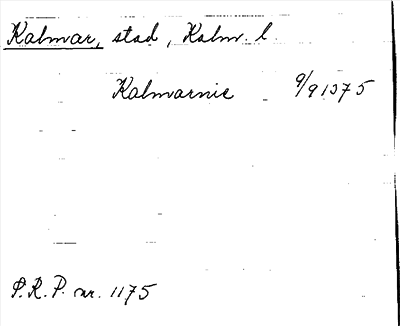 Kalmar, stad, Kalm. l.
Kalmarnie 9/9 1375
S.R.P. nr. 1175